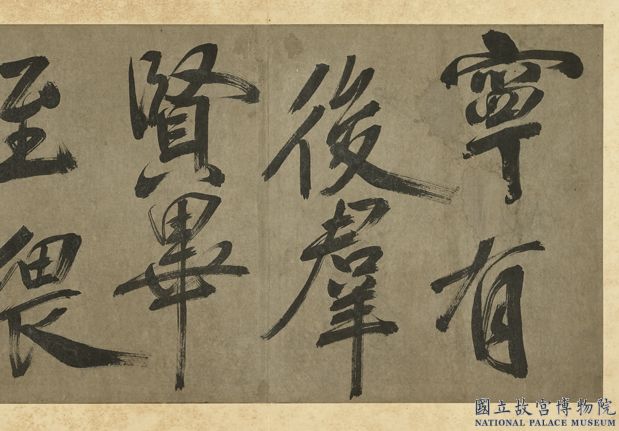 寧有
後羣
賢畢
至猥
國立故宮博物院
NATIONAL PALACE MUSEUM